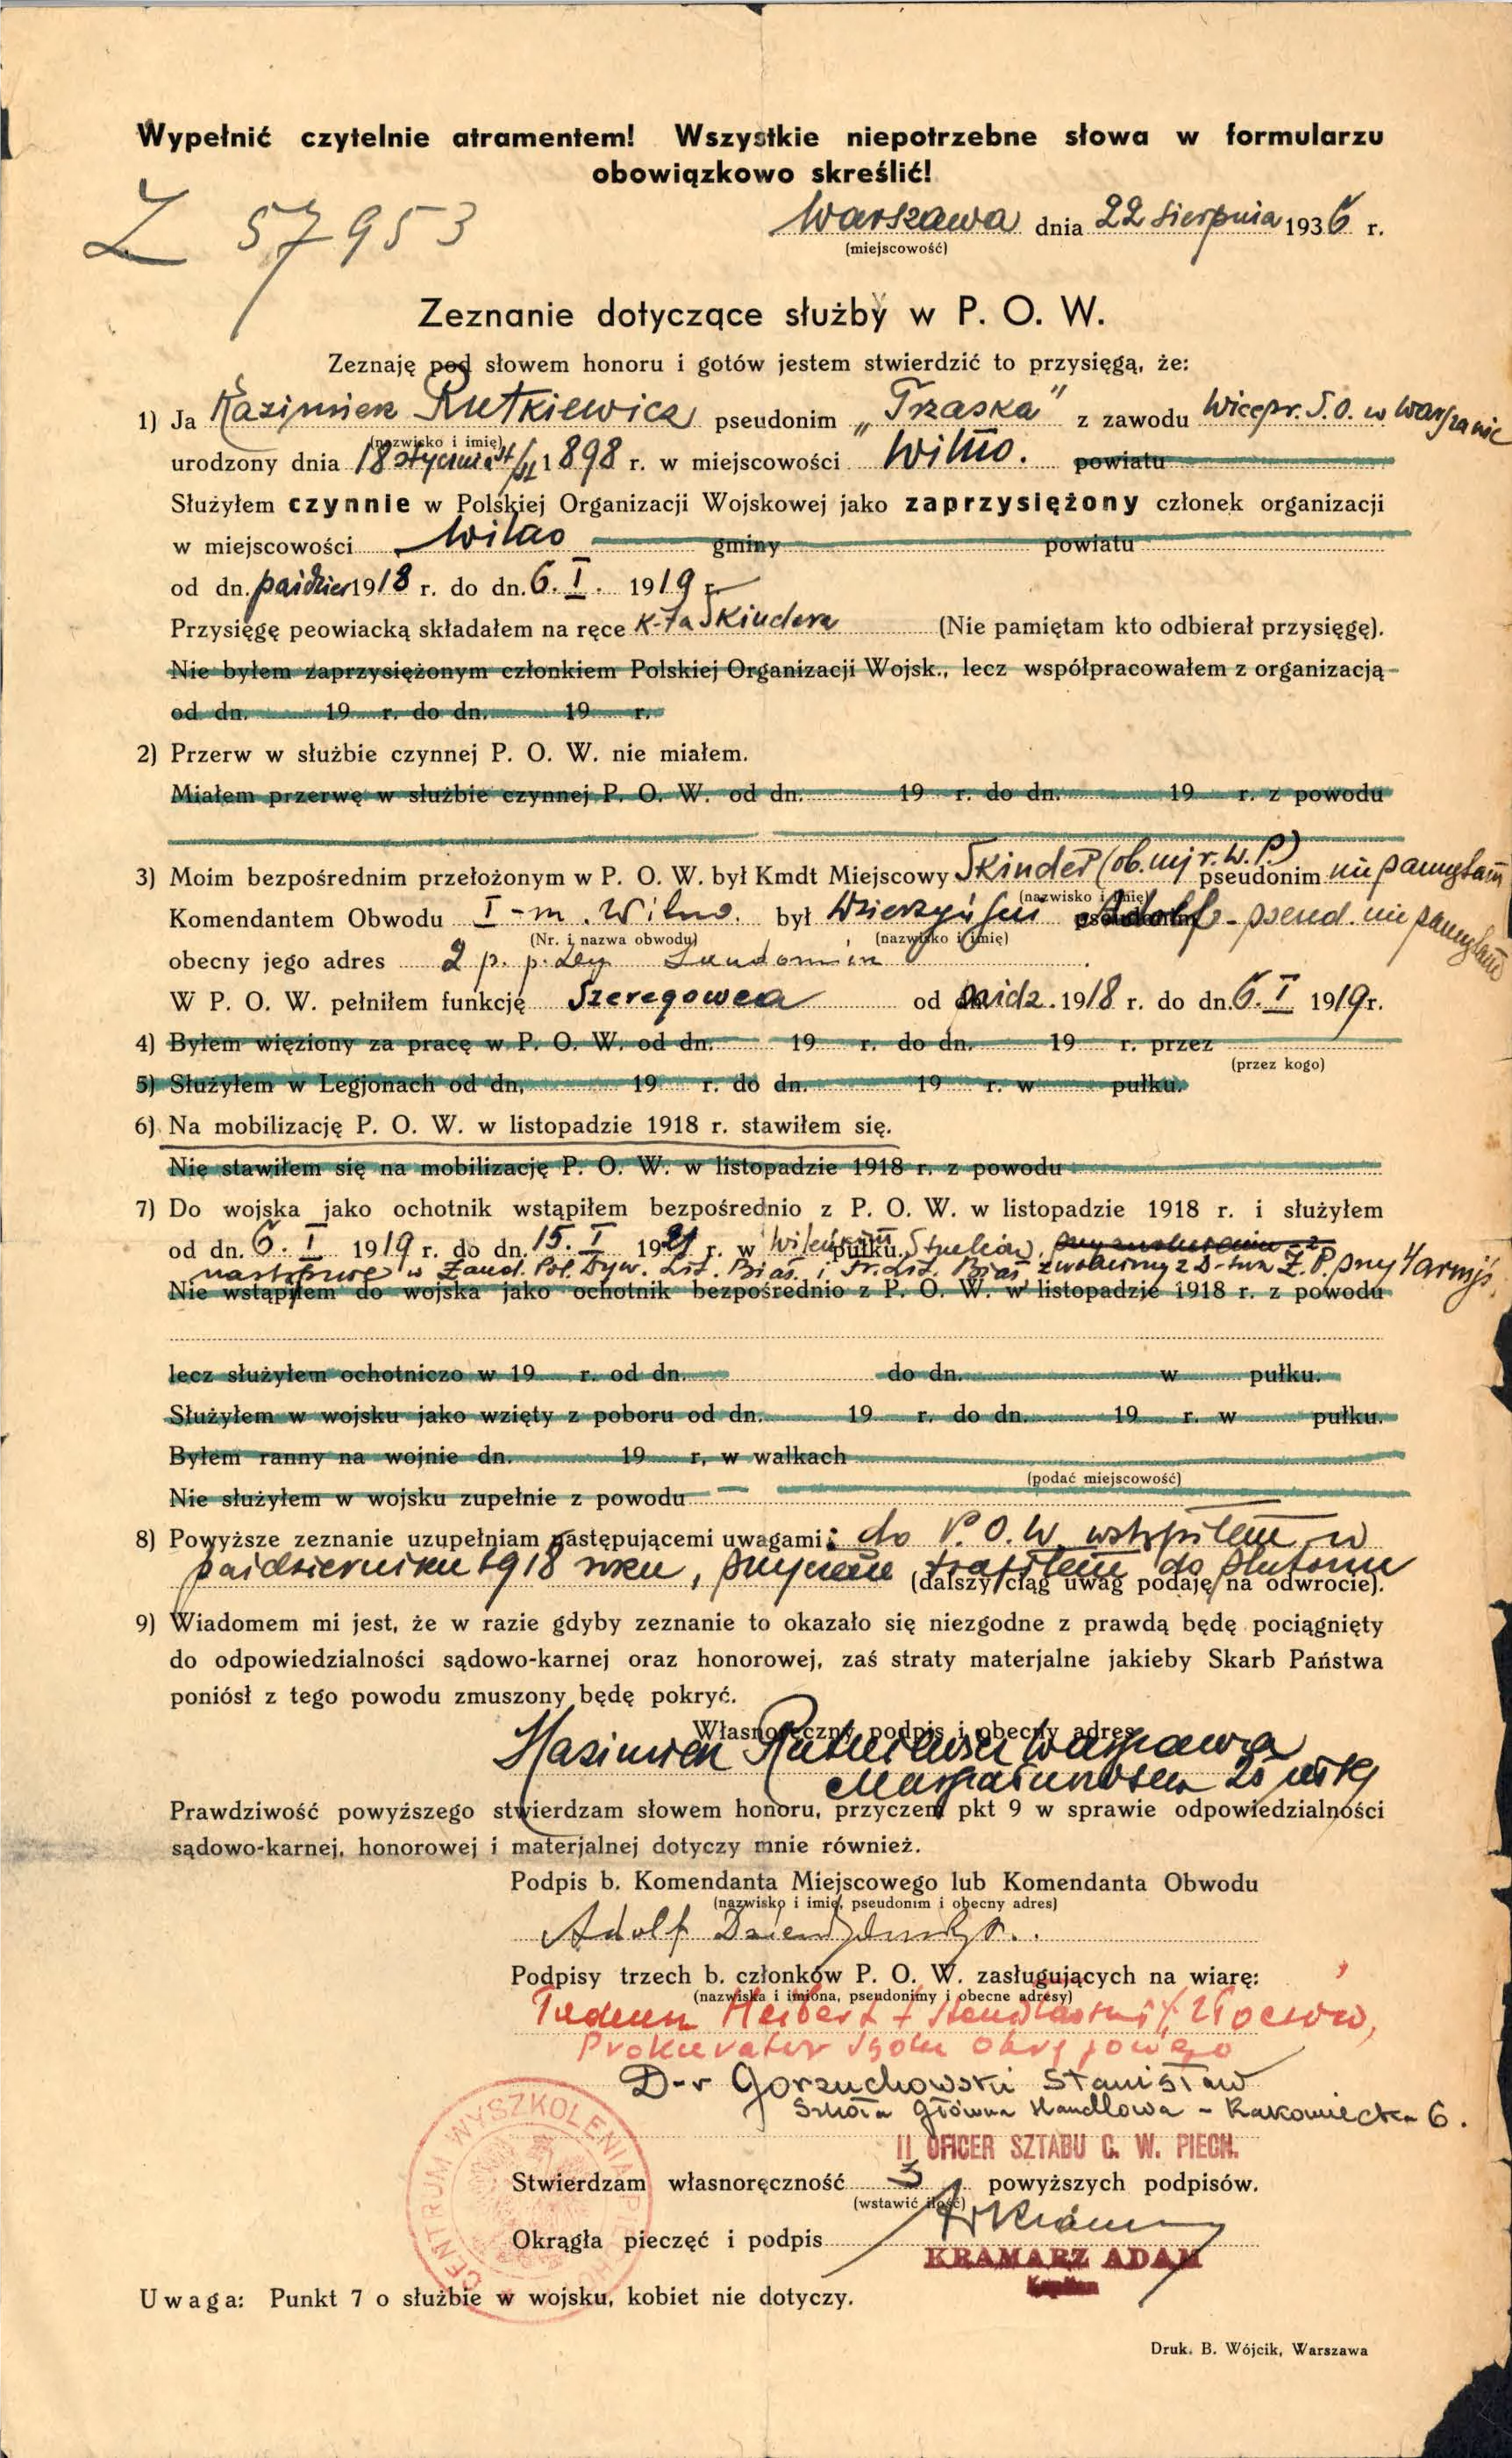 Wypełnić czytelnie atramentem! Wszystkie niepotrzebne słowa w formularzu
obowiązkowo skreślić!
Z 57953
Warszawa dnia 22 sierpnia 1936 r.
(miejscowość)
Zeznanie dotyczące służby w P. O. W.
Zeznaję pod słowem honoru i gotów jestem stwierdzić to przysięgą, że:
1) Ja Kazimierz Rutkiewicz pseudonim „Trzaska" z zawodu Wicepr. S.O. w Warszawie
(nazwisko i imię)
urodzony dnia 18 stycznia 1898 r. w miejscowości Wilno. powiatu
Służyłem czynnie w Polskiej Organizacji Wojskowej jako zaprzysiężony członek organizacji
w miejscowości Wilno gminy powiatu
od dn. paździer 1918 r. do dn. 6. I. 1919 r.
Przysięgę peowiacką składałem na ręce K-ta Skindera (Nie pamiętam kto odbierał przysięgę).
Nie byłem zaprzysiężonym członkiem Polskiej Organizacji Wojsk., lecz współpracowałem z organizacją
od dn. 19 r. do dn. 19 r.
2) Przerw w służbie czynnej P. O. W. nie miałem.
Miałem przerwę w służbie czynnej P. O. W. od dn. 19 r. do dn. 19 r. z powodu
3) Moim bezpośrednim przełożonym w P. O. W. był Kmdt Miejscowy Skinder (ob. mjr. W. P.) pseudonim nie pamiętam
(nazwisko i imię)
Komendantem Obwodu I-m. Wilno. był Adolf - pseud. nie pamiętam
(Nr. i nazwa obwodu) (nazwisko i imię)
obecny jego adres 2 p. p. Leg. Sandomierz
W P. O. W. pełniłem funkcję Szeregowca od paźdz. 1918 r. do dn. 6. I 1919 r.
4) Byłem więziony za pracę w P. O. W. od dn. 19 r. do dn. 19 r. przez
(przez kogo)
5) Służyłem w Legjonach od dn. 19 r. do dn. 19 r. w pułku.
6) Na mobilizację P. O. W. w listopadzie 1918 r. stawiłem się.
Nie stawiłem się na mobilizację P. O. W. w listopadzie 1918 r. z powodu
7) Do wojska jako ochotnik wstąpiłem bezpośrednio z P. O. W. w listopadzie 1918 r. i służyłem
od dn. 6. I 1919 r. do dn. 15. I 1921 r. w Wileńskim pułku Strzelców,
następnie w Żand. Pol. Dyw. Lit. Biał. i Fr. Lit. Biał zwolniony z D-twa Ż. P. przy 4 armji.
Nie wstąpiłem do wojska jako ochotnik bezpośrednio z P. O. W. w listopadzie 1918 r. z powodu
lecz służyłem ochotniczo w 19 r. od dn. do dn. w pułku.
Służyłem w wojsku jako wzięty z poboru od dn. 19 r. do dn. 19 r. w pułku.
Byłem ranny na wojnie dn. 19 r. w walkach
(podać miejscowość)
Nie służyłem w wojsku zupełnie z powodu
8) Powyższe zeznanie uzupełniam następującemi uwagami: do P. O. W. wstąpiłem w
październiku 1918 roku, przyczem trafiłem do plutonu (dalszy ciąg uwag podaję na odwrocie).
9) Wiadomem mi jest, że w razie gdyby zeznanie to okazało się niezgodne z prawdą będę pociągnięty
do odpowiedzialności sądowo-karnej oraz honorowej, zaś straty materjalne jakieby Skarb Państwa
poniósł z tego powodu zmuszony będę pokryć.
Własnoręczny podpis i obecny adres
Kazimierz Rutkiewicz Warszawa
Marszałkowska
Prawdziwość powyższego stwierdzam słowem honoru, przyczem pkt 9 w sprawie odpowiedzialności
sądowo-karnej, honorowej i materjalnej dotyczy mnie również.
Podpis b. Komendanta Miejscowego lub Komendanta Obwodu
(nazwisko i imię, pseudonim i obecny adres)
Adolf
Podpisy trzech b. członków P. O. W. zasługujących na wiarę:
(nazwiska i imiona, pseudonimy i obecne adresy)
Tadeusz Herbert Złoczów,
Prokurator Sądu Okręgowego
D-r Gorzuchowski Stanisław
Szkoła Główna Handlowa - Rakowiecka 6.
II OFICER SZTABU C. W. PIECH.
Stwierdzam własnoręczność 3 powyższych podpisów.
(wstawić ilość)
Okrągła pieczęć i podpis
KRAMARZ ADAM
Kapitan
CENTRUM WYSZKOLENIA PIECHOTY
Uwaga: Punkt 7 o służbie w wojsku, kobiet nie dotyczy.
Druk. B. Wójcik, Warszawa